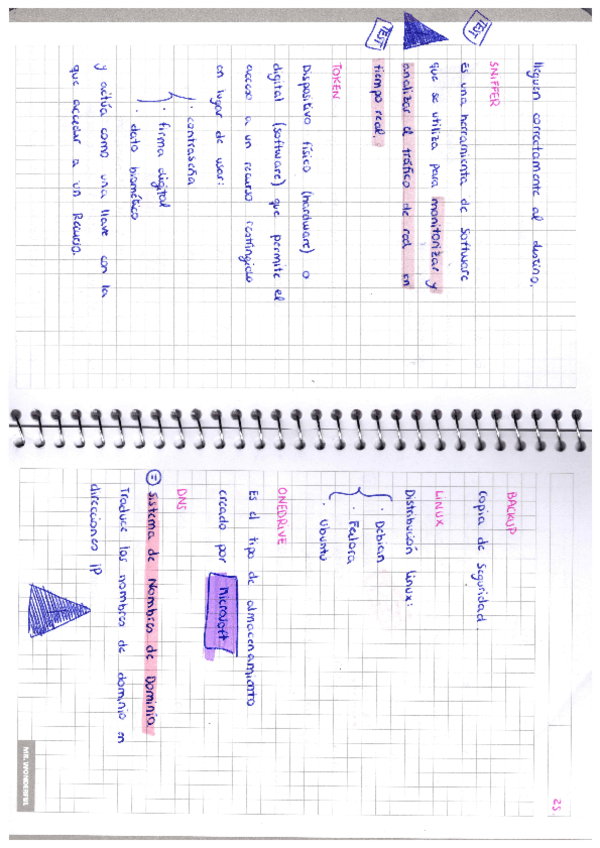 lleguen correctamente al destino.
SNIFFER
TEST
Es una herramienta de software
que se utiliza para monitorizar y
analizar el tráfico de red en
tiempo real.
TEST
TOKEN
Dispositivo físico (hardware) o
digital (software) que permite el
acceso a un recurso restringido
en lugar de usar:
· contraseña
· firma digital
· dato biométrico
y actúa como una llave con la
que acceder a un Recurso.
25
BACKUP
copia de seguridad.
LINUX
Distribución Linux:
· Debian
· Fedora
· Ubuntu
ONEDRIVE
Es el tipo de almacenamiento
creado por Microsoft
DNS
= Sistema de Nombres de Dominio.
Traduce los nombres de dominio en
direcciones IP
MR. WONDERFUL